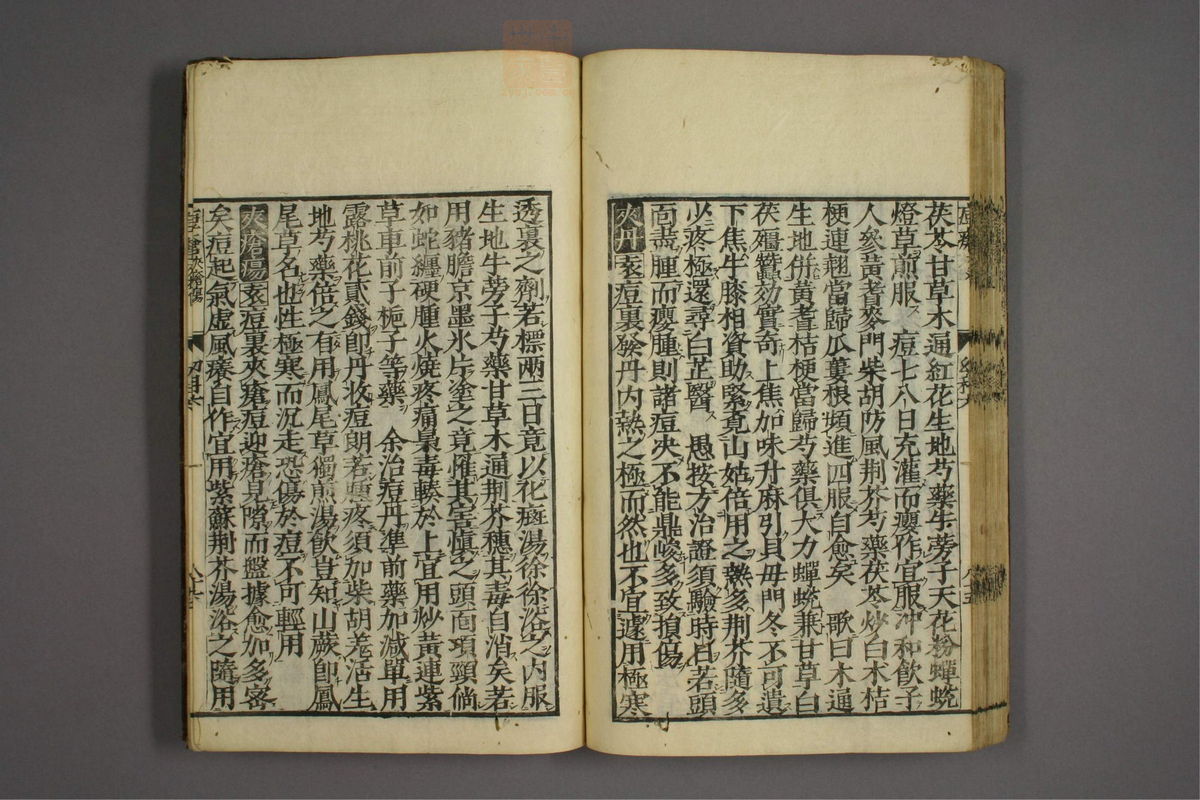 茯苓甘草木通紅花生地芍藥牛蒡子天花粉蟬蛻
燈草煎服 痘七八日充灌而癭作宜服冲和飲子
人參黃耆麥門柴胡防風荆芥芍藥茯苓炒白木桔
梗連翹當歸瓜蔞根頻進四服自愈矣 歌曰木通
生地併黃耆桔梗當歸芍藥俱大力蟬蛻兼甘草白
茯殭蠶効實奇上焦加味升麻引貝毋門冬不可遺
下焦牛膝相資助緊克山姑倍用之熱多荆芥隨多
少疼極還尋白芷醫 愚按方治證須驗時日若頭
面盡腫而癭腫則諸痘决不能鼎峻多致損傷
夾丹 表痘裏發丹内熱之極而然也不宜遽用極寒
透裏之劑若標兩三日竟以化斑湯徐徐浴之内服
生地牛蒡子芍藥甘草木通荆芥穗其毒自消矣若
用豬膽京墨氷片塗之竟罹其害愼之頭面項頸倘
如蛇纏硬腫火燒疼痛梟毒輳於上宜用炒黃連紫
草車前子梔子等藥 余治痘丹凖前藥加減單用
露桃花貳錢即丹收痘朗若頭疼須加柴胡羗活生
地芍藥倍之有用鳳尾草獨煎湯飲豈知山蕨即鳳
尾草名也性極寒而沉走恐傷於痘不可輕用
夾瘡瘍 表痘裏夾瘡痘迎瘡見隙而盤據愈加多密
矣痘起氣虚風癢自作宜用紫蘇荆芥湯浴之隨用